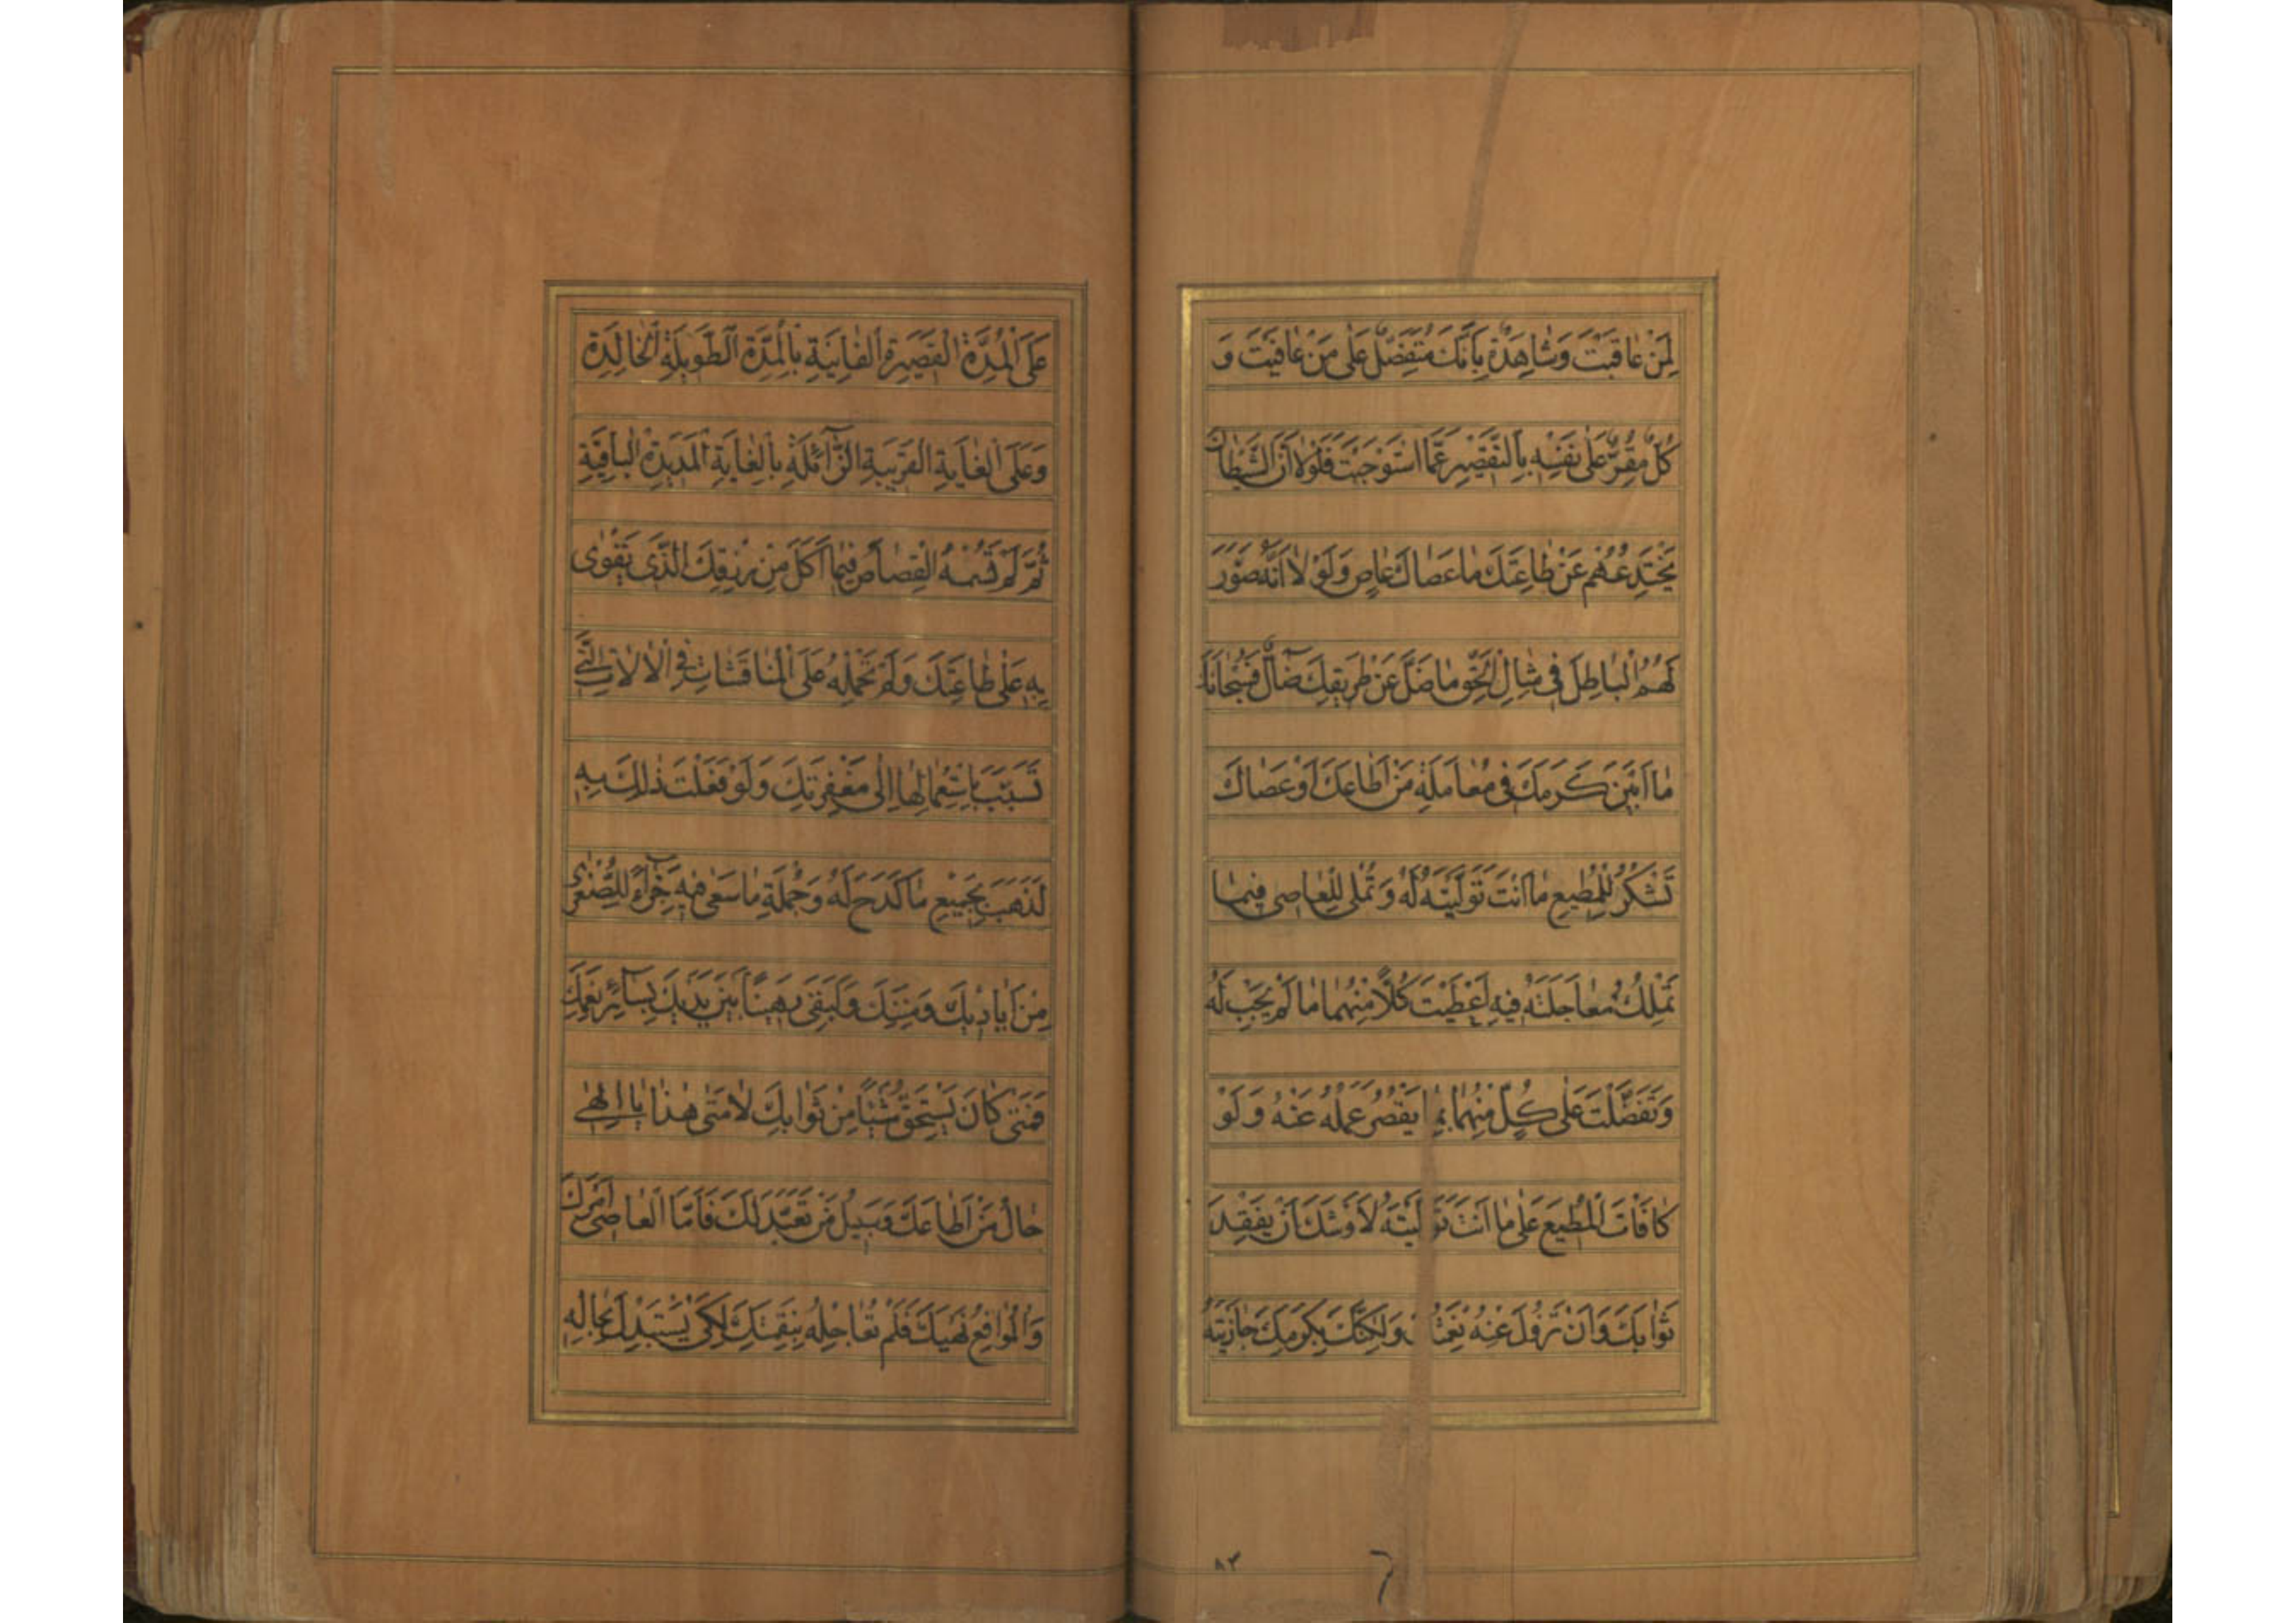 لِمَنْ عَاقَبْتَ وَشَاهِدَةٌ بِاَنَّكَ مُتَفَضِّلٌ عَلٰى مَنْ عَافَيْتَ وَ
كُلٌّ مُقِرٌّ عَلٰى نَفْسِهِ بِالتَّقْصِيرِ عَمَّا اسْتَوْجَبْتَ فَلَوْلَا اَنَّ الشَّيْطَانَ
يَخْتَدِعُهُمْ عَنْ طَاعَتِكَ مَا عَصَاكَ عَاصٍ وَلَوْ لَا اَنَّهُ صَوَّرَ
لَهُمُ الْبَاطِلَ فِي مِثَالِ الْحَقِّ مَا ضَلَّ عَنْ طَرِيقِكَ ضَآلٌّ فَسُبْحَانَكَ
مَا اَبْيَنَ كَرَمَكَ فِي مُعَامَلَةِ مَنْ اَطَاعَكَ اَوْ عَصَاكَ
تَشْكُرُ لِلْمُطِيعِ مَا اَنْتَ تَوَلَّيْتَهُ لَهُ وَتُمْلِي لِلْعَاصِي فِيمَا
تَمْلِكُ مُعَاجَلَتَهُ فِيهِ اَعْطَيْتَ كُلًّا مِنْهُمَا مَا لَمْ يَجِبْ لَهُ
وَتَفَضَّلْتَ عَلٰى كُلٍّ مِنْهُمَا بِمَا يَقْصُرُ عَمَلُهُ عَنْهُ وَلَوْ
كَافَاْتَ الْمُطِيعَ عَلٰى مَا اَنْتَ تَوَلَّيْتَهُ لَاَوْشَكَ اَنْ يَفْقِدَ
ثَوَابَكَ وَاَنْ تَزُولَ عَنْهُ نِعْمَتُكَ وَلٰكِنَّكَ بِكَرَمِكَ جَازَيْتَهُ
عَلَى الْمُدَّةِ الْقَصِيرَةِ الْفَانِيَةِ بِالْمُدَّةِ الطَّوِيلَةِ الْخَالِدَةِ
وَعَلَى الْغَايَةِ الْقَرِيبَةِ الزَّآئِلَةِ بِالْغَايَةِ الْمَدِيدَةِ الْبَاقِيَةِ
ثُمَّ لَمْ تَسُمْهُ الْقِصَاصَ فِيمَا اَكَلَ مِنْ رِزْقِكَ الَّذِي يَقْوٰى
بِهِ عَلٰى طَاعَتِكَ وَلَمْ تَحْمِلْهُ عَلَى الْمُنَاقَشَاتِ فِي الْاٰلَاتِ الَّتِي
تَسَبَّبَ بِاسْتِعْمَالِهَا اِلٰى مَغْفِرَتِكَ وَلَوْ فَعَلْتَ ذٰلِكَ بِهِ
لَذَهَبَ بِجَمِيعِ مَا كَدَحَ لَهُ وَجُمْلَةِ مَا سَعٰى فِيهِ جَزَآءً لِلصُّغْرٰى
مِنْ اَيَادِيكَ وَمِنَنِكَ وَلَبَقِيَ رَهِينًا بَيْنَ يَدَيْكَ بِسَآئِرِ نِعَمِكَ
فَمَتٰى كَانَ يَسْتَحِقُّ شَيْئًا مِنْ ثَوَابِكَ لَا مَتٰى هٰذَا يَا اِلٰهِي
حَالُ مَنْ اَطَاعَكَ وَسَبِيلُ مَنْ تَعَبَّدَ لَكَ فَاَمَّا الْعَاصِي اَمْرَكَ
وَالْمُوَاقِعُ نَهْيَكَ فَلَمْ تُعَاجِلْهُ بِنِقْمَتِكَ لِكَيْ يَسْتَبْدِلَ بِحَالِهِ
٨٣